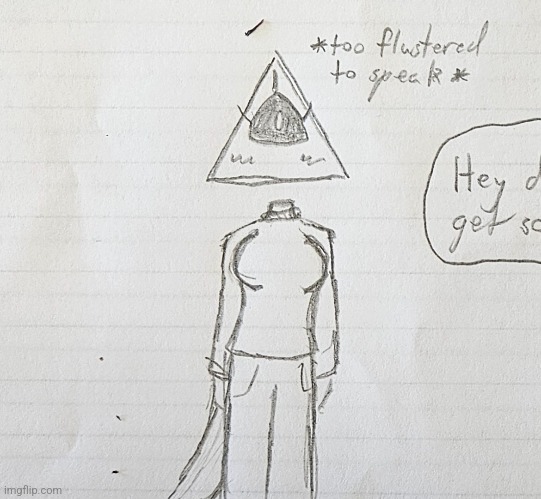 *too flustered
to speak*
Hey d
get so
imgflip.com